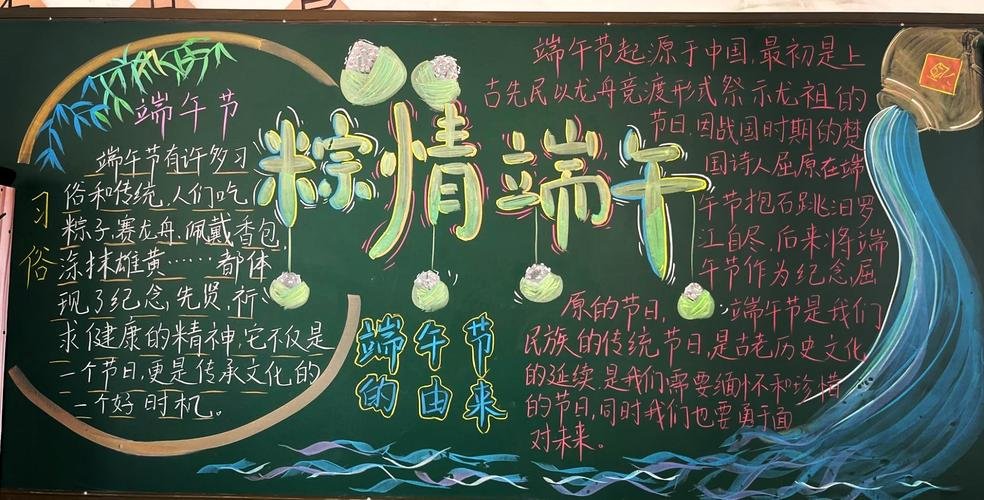 粽情端午
端午节
习俗
端午节有许多习
俗和传统,人们吃
粽子,赛龙舟,佩戴香包,
涂抹雄黄……都体
现了纪念先贤,祈
求健康的精神,它不仅是
一个节日,更是传承文化的
一个好时机。
端午节
的由来
端午节起源于中国,最初是上
古先民以龙舟竞渡形式祭示龙祖的
节日,因战国时期的楚
国诗人屈原在端
午节抱石跳汨罗
江自尽,后来将端
午节作为纪念屈
原的节日,端午节是我们
民族的传统节日,是古老历史文化
的延续.是我们需要缅怀和珍惜
的节日,同时我们也要勇于面
对未来。